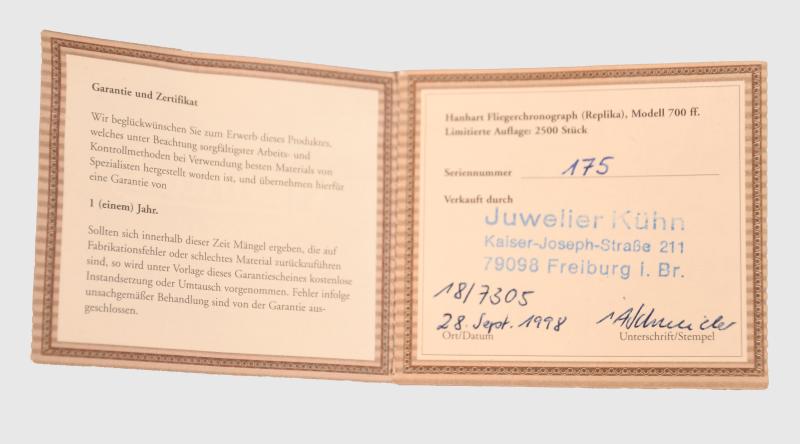 Garantie und Zertifikat
Wir beglückwünschen Sie zum Erwerb dieses Produktes,
welches unter Beachtung sorgfältigster Arbeits- und
Kontrollmethoden bei Verwendung besten Materials von
Spezialisten hergestellt worden ist, und übernehmen hierfür
eine Garantie von
1 (einem) Jahr.
Sollten sich innerhalb dieser Zeit Mängel ergeben, die auf
Fabrikationsfehler oder schlechtes Material zurückzuführen
sind, so wird unter Vorlage dieses Garantiescheines kostenlose
Instandsetzung oder Umtausch vorgenommen. Fehler infolge
unsachgemäßer Behandlung sind von der Garantie aus-
geschlossen.
Hanhart Fliegerchronograph (Replika), Modell 700 ff.
Limitierte Auflage: 2500 Stück
Seriennummer 175
Verkauft durch
Juwelier Kühn
Kaiser-Joseph-Straße 211
79098 Freiburg i. Br.
18/7305
28. Sept. 1998
Ort/Datum
Unterschrift/Stempel